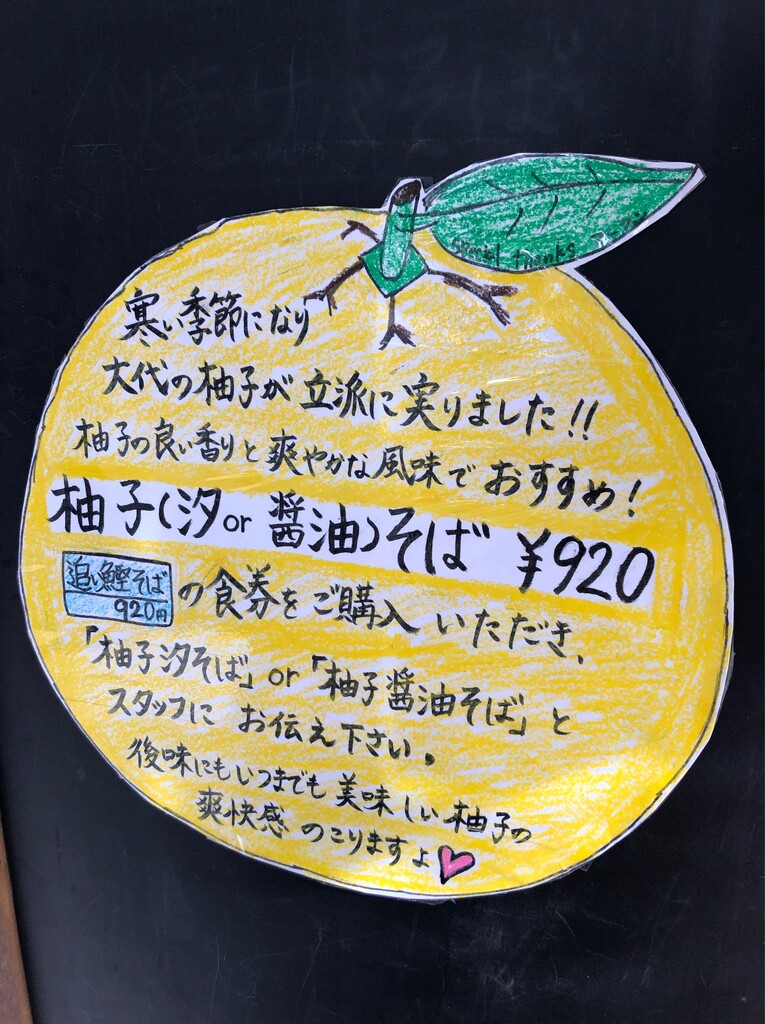 special thanks
寒い季節になり
大代の柚子が立派に実りました!!
柚子の良い香りと爽やかな風味でおすすめ!
柚子(汐or醤油)そば ¥920
追い鰹そば
920円
の食券をご購入いただき、
「柚子汐そば」or「柚子醤油そば」と
スタッフにお伝え下さい。
後味にもいつまでも美味しい柚子の
爽快感のこりますよ♡